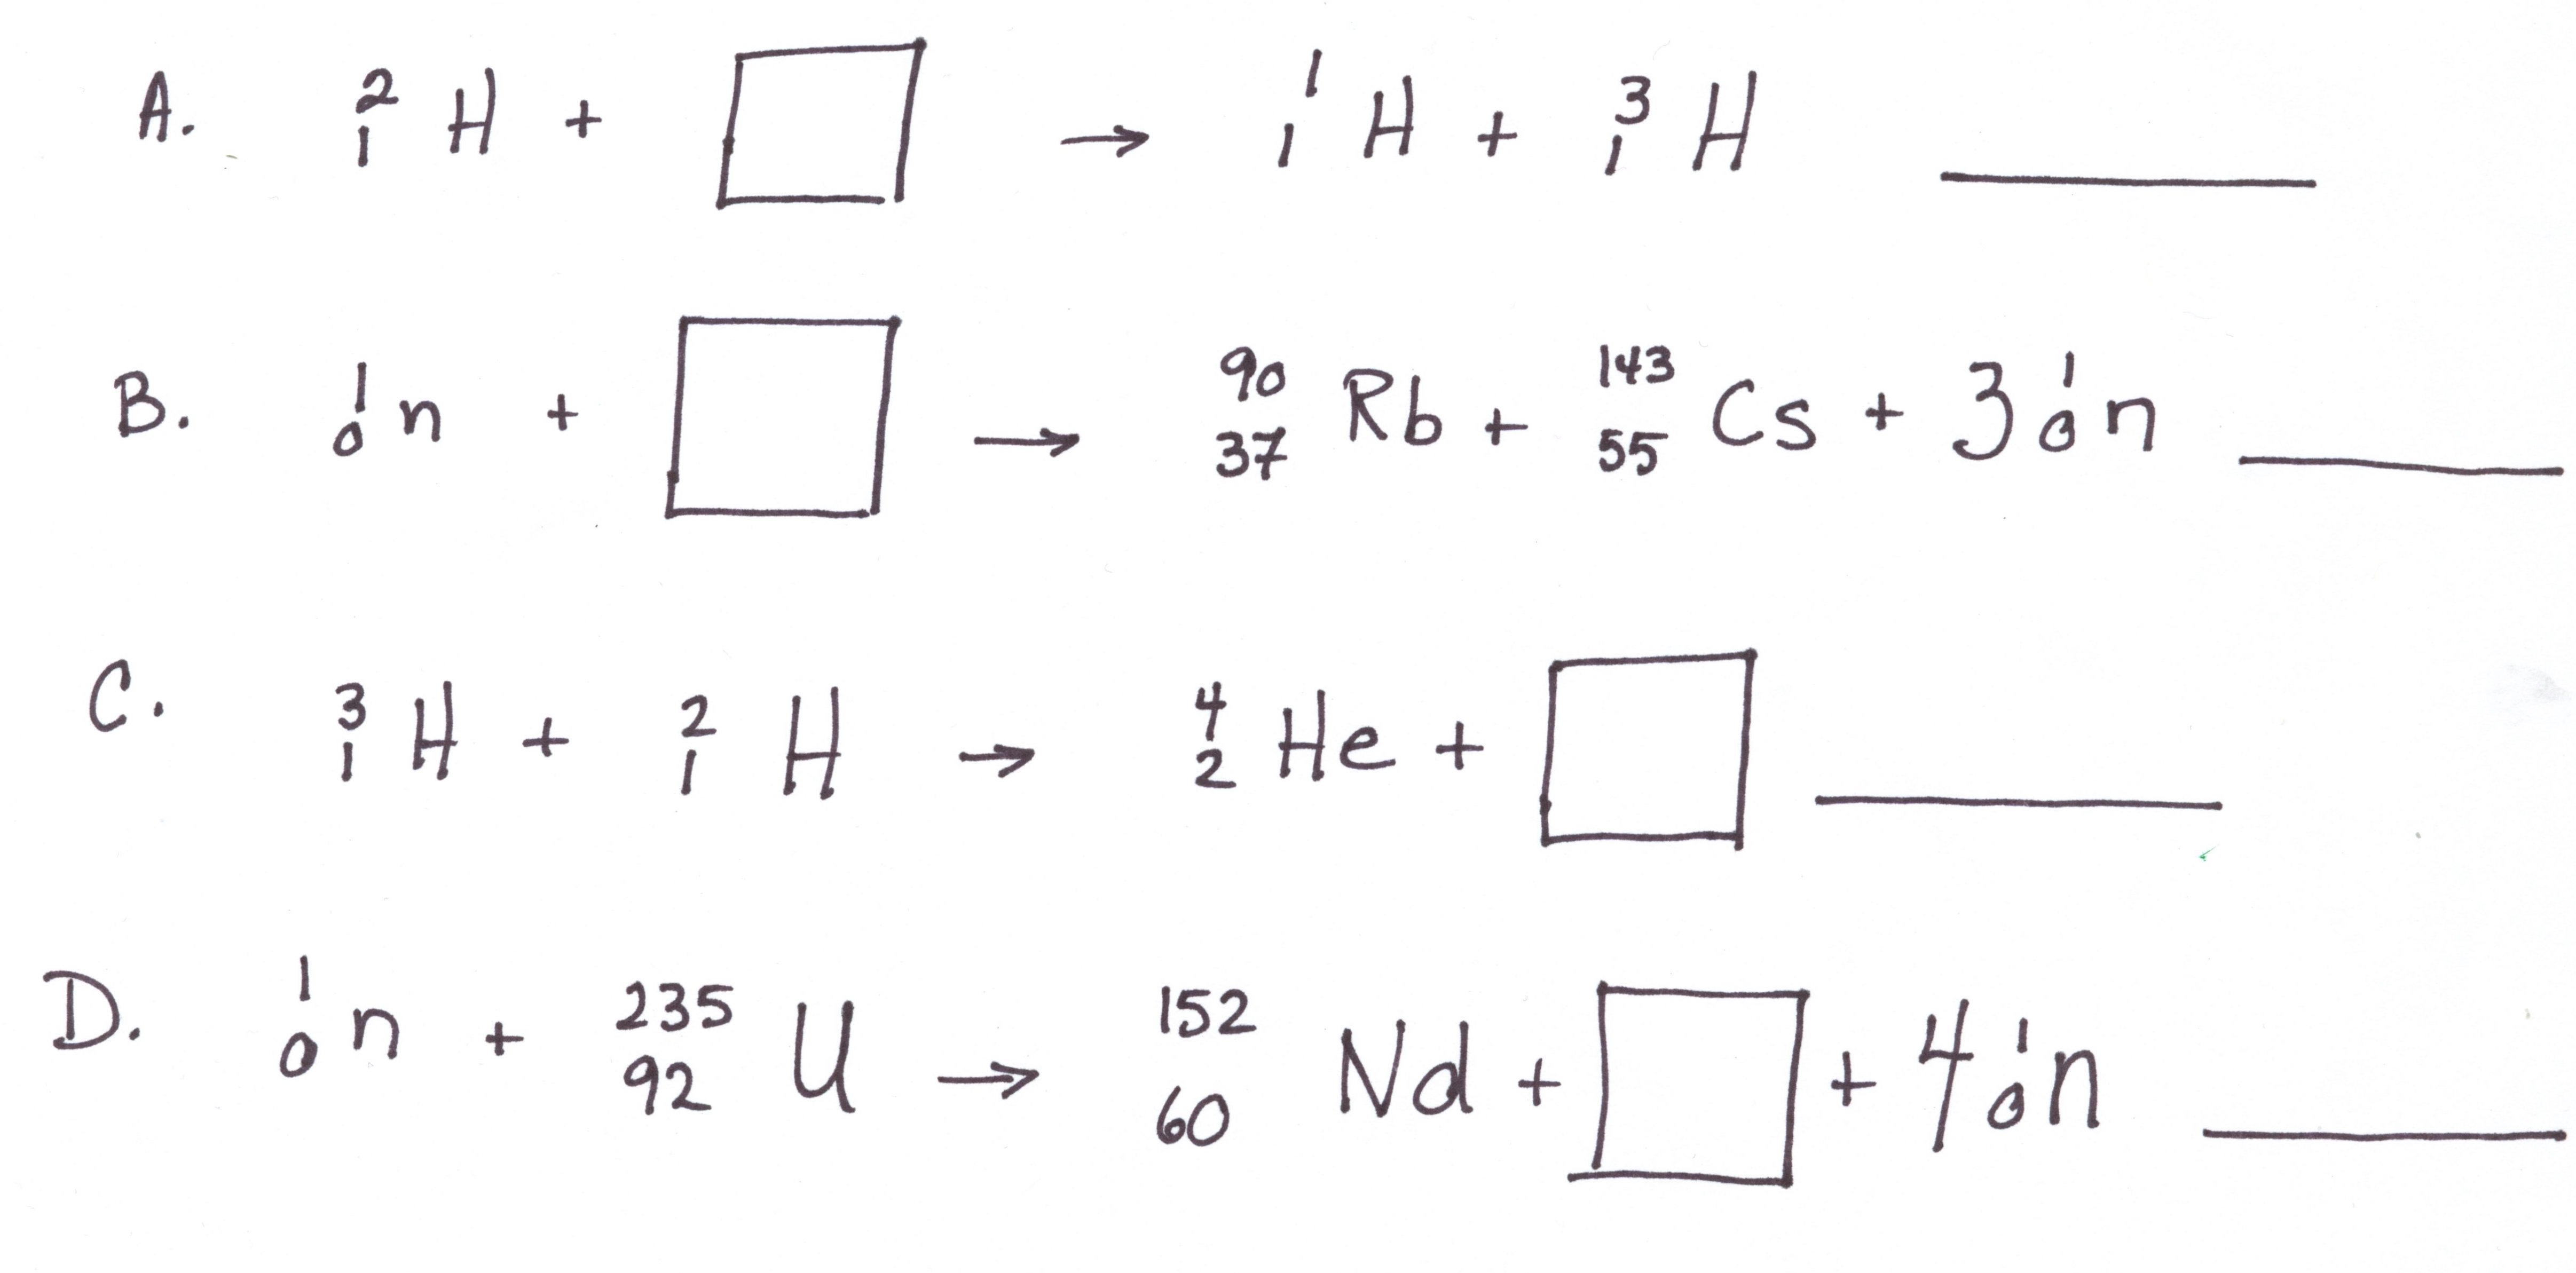 A. ²₁H + □ → ¹₁H + ³₁H ______
B. ¹₀n + □ → ⁹⁰₃₇Rb + ¹⁴³₅₅Cs + 3 ¹₀n ______
C. ³₁H + ²₁H → ⁴₂He + □ ______
D. ¹₀n + ²³⁵₉₂U → ¹⁵²₆₀Nd + □ + 4 ¹₀n ______